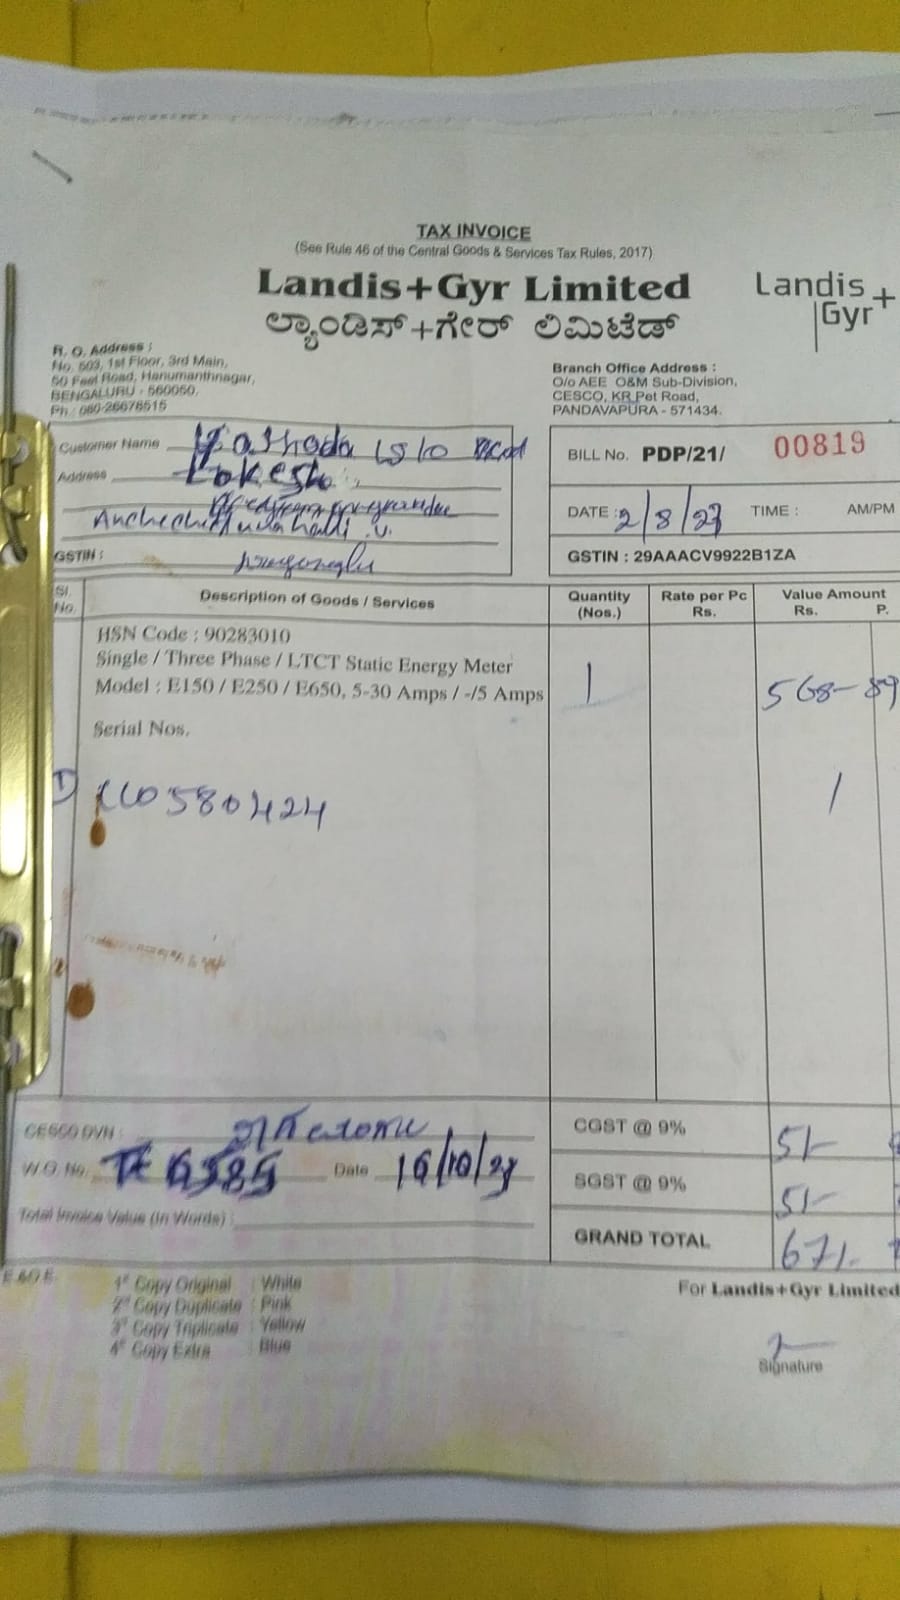 TAX INVOICE
(See Rule 46 of the Central Goods & Services Tax Rules, 2017)
Landis+Gyr Limited
ಲ್ಯಾಂಡಿಸ್+ಗೇರ್ ಲಿಮಿಟೆಡ್
Landis+
Gyr
R. O. Address :
No. 503, 1st Floor, 3rd Main,
50 Feet Road, Hanumanthnagar,
BENGALURU - 560050.
Ph : 080-26676515
Branch Office Address :
O/o AEE O&M Sub-Division,
CESCO, KR Pet Road,
PANDAVAPURA - 571434.
Customer Name Yashoda
Address Lokesh
GSTIN :
BILL No. PDP/21/ 00819
DATE : 2/8/23 TIME : AM/PM
GSTIN : 29AAACV9922B1ZA
Sl. No. Description of Goods / Services Quantity (Nos.) Rate per Pc Rs. Value Amount Rs. P.
HSN Code : 90283010
Single / Three Phase / LTCT Static Energy Meter
Model : E150 / E250 / E650, 5-30 Amps / -/5 Amps 1 568-89
Serial Nos.
CESCO DVN :
W.O. No. Date 16/10/
Total Invoice Value (In Words) :
CGST @ 9% 51-
SGST @ 9% 51-
GRAND TOTAL 671-
E & O E.
1st Copy Original : White
2nd Copy Duplicate : Pink
3rd Copy Triplicate : Yellow
4th Copy Extra : Blue
For Landis+Gyr Limited
Signature